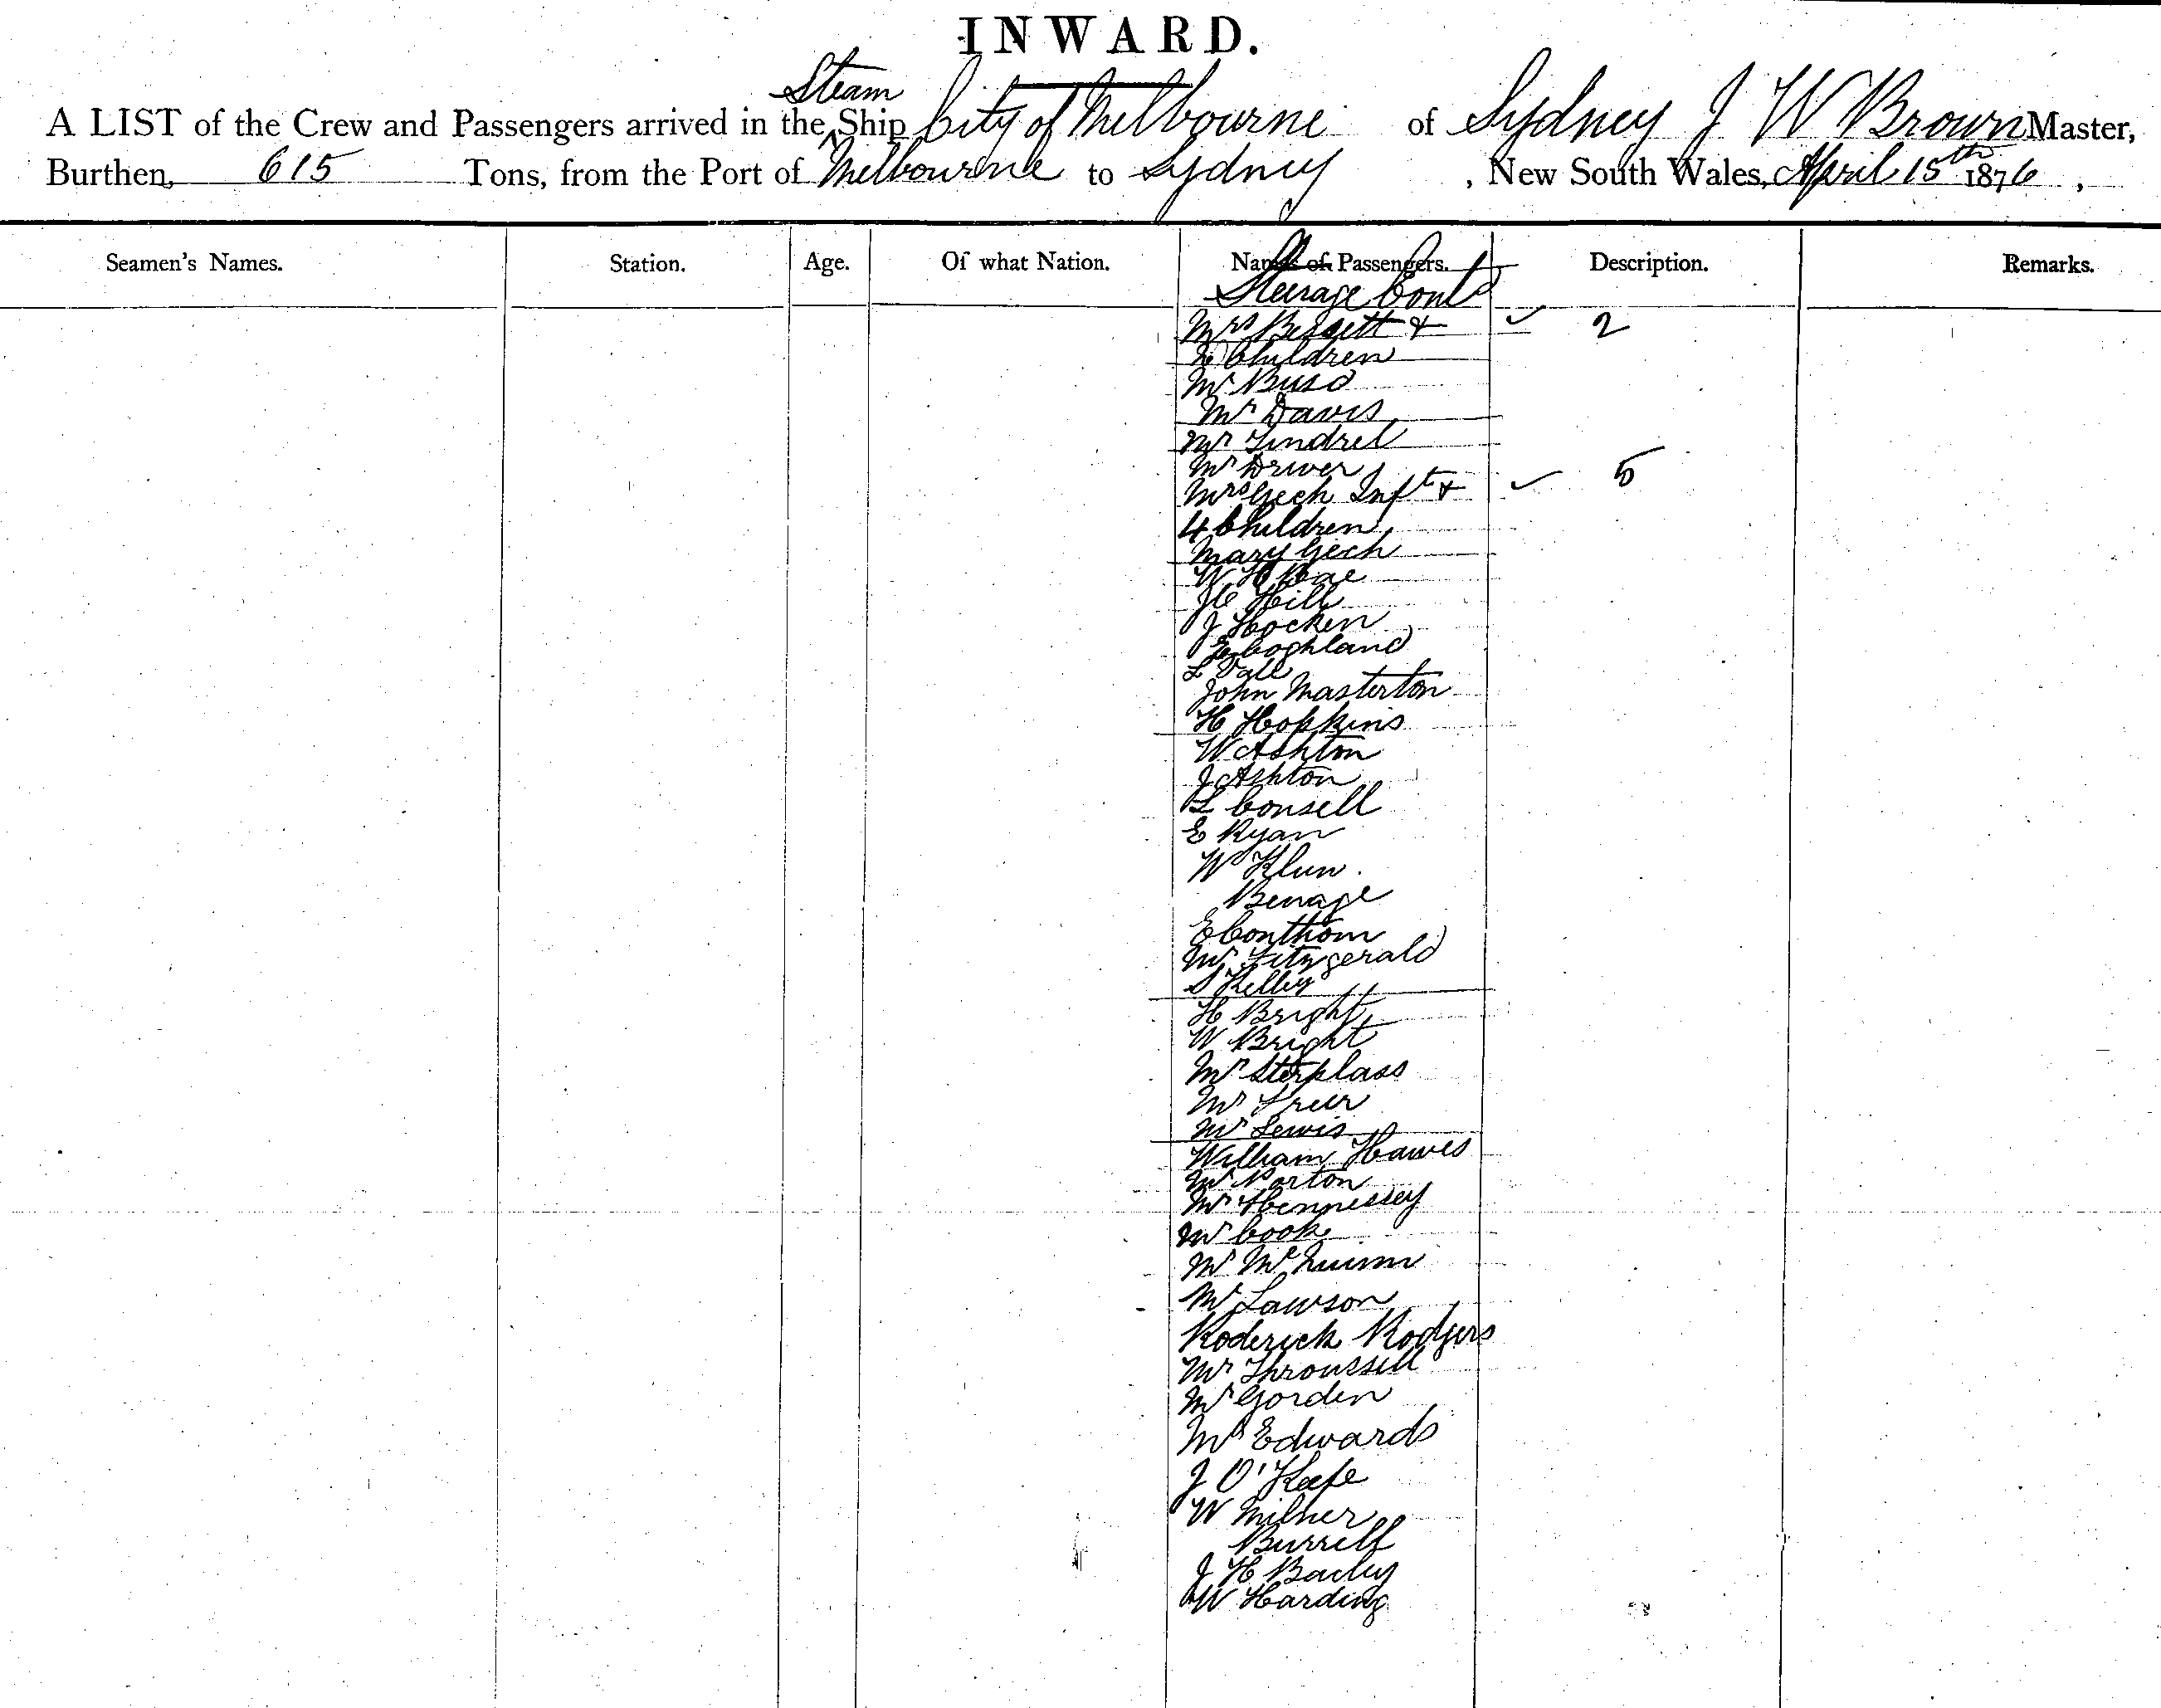 INWARD.
Steam
A LIST of the Crew and Passengers arrived in the Ship City of Melbourne of Sydney J W Brown Master,
Burthen, 615 Tons, from the Port of Melbourne to Sydney , New South Wales, April 15th 1876 ,
Seamen's Names. Station. Age. Of what Nation. Names of Passengers. Description. Remarks.
Steerage Contd
Mrs Bessett & 2
2 Children
Mr Busd
Mr Davis
Mr Tindrel
Mr Driver
Mrs Gech Inft & 5
4 Children
Mary Gech
W H Rae
J C Hill
J Hocken
Coghland
L Vale
John Masterton
H Hopkins
W Ashton
J Ashton
L Consell
E Ryan
W Klun.
Benage
E Conthom
Mr Fitzgerald
S Kelley
H Bright
W Bright
Mr Sterplass
Mr Freer
Mr Lewis
William Hawes
Mr Porton
Mr Hennessey
Mr Cook
Mr McQuinn
Mr Lawson
Roderick Rodgers
Mr Throussell
Mr Gorden
Mr Edwards
J O'Keefe
W Milner
Burrell
J H Bailey
W Harding